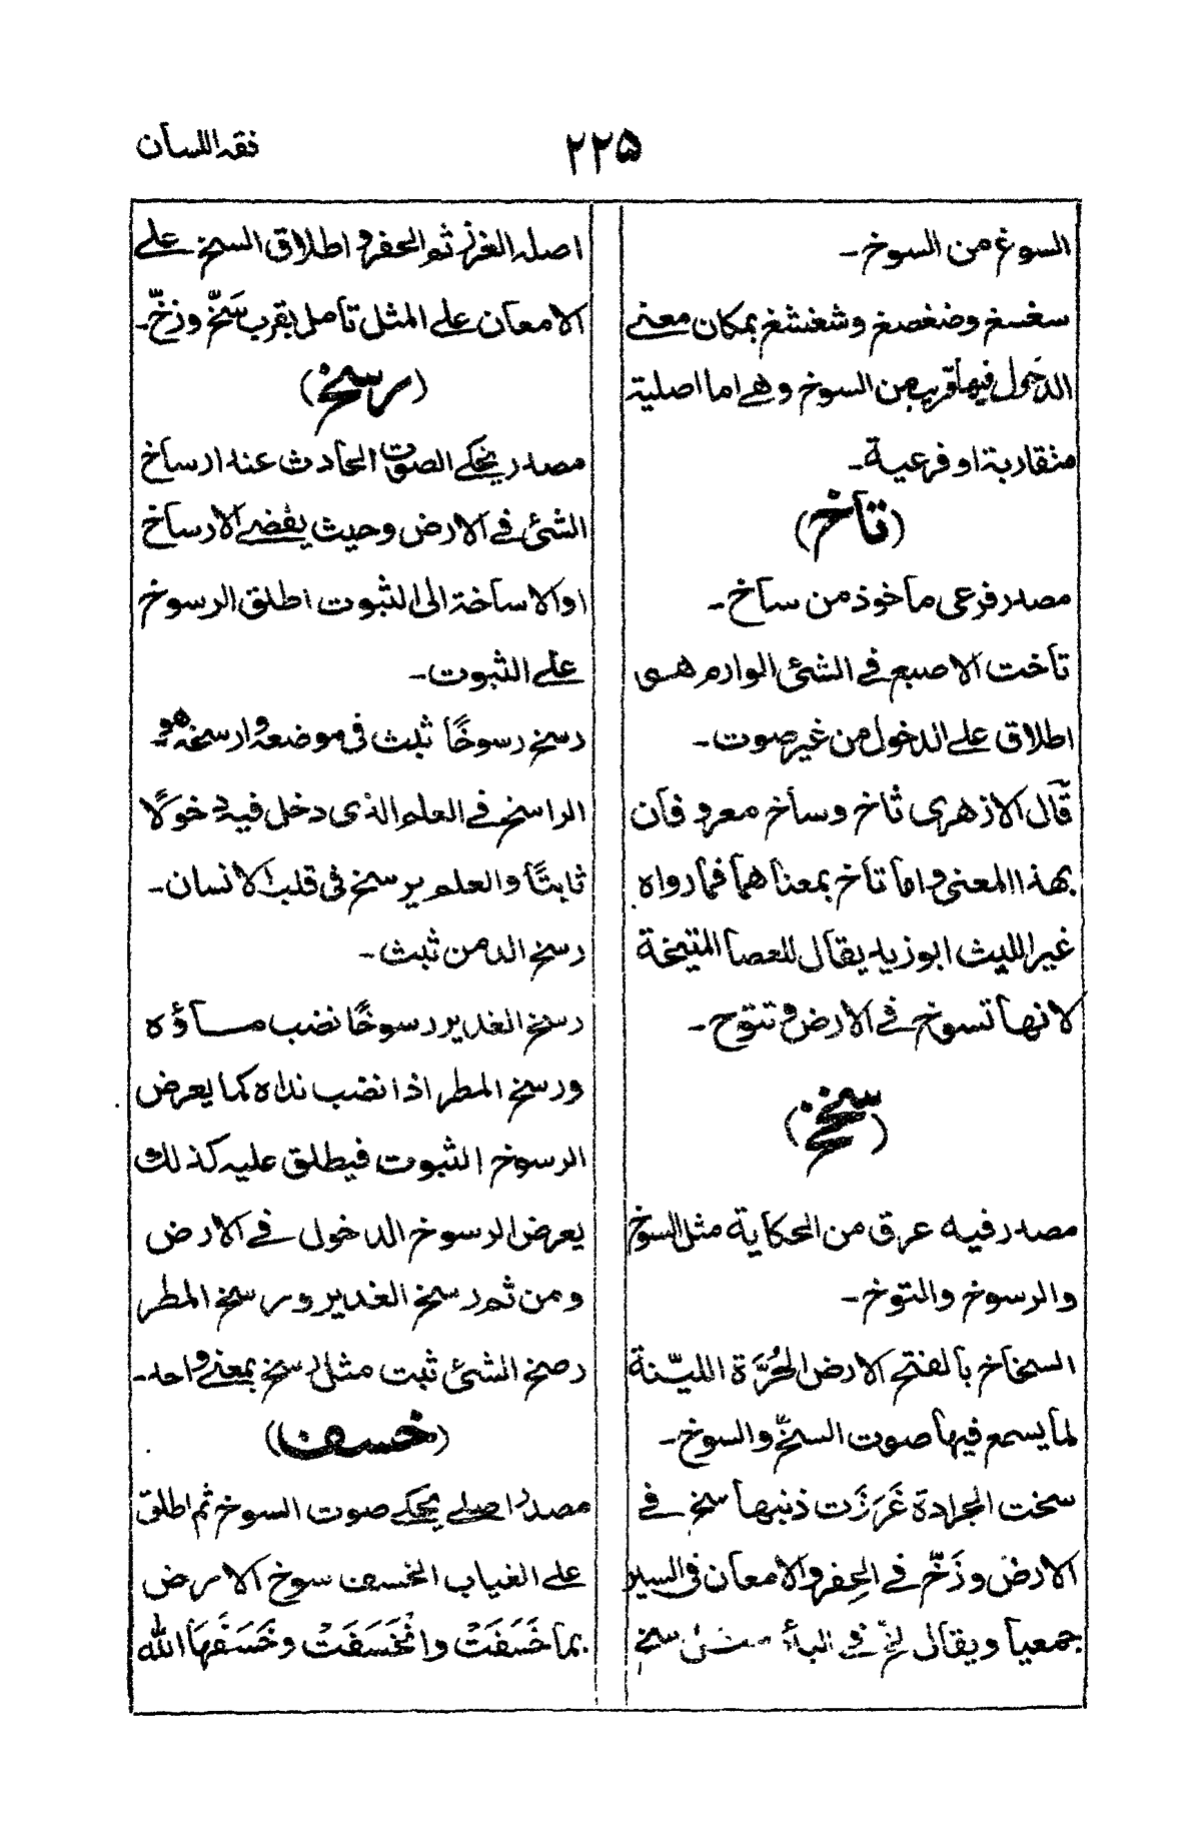 فقه اللسان
٢٢٥
السوغ من السوخ ۔
سغسغ وضغضغ وشغشغ بمكان معنے
الدخول فيها قريب من السوخ وهے اما اصلية
متقاربة او فرعية ۔
(تاخ)
مصدر فرعى ماخوذ من ساخ ۔
تاخت الاصبع فے الشئ الوارم هى
اطلاق علے الدخول من غير صوت ۔
قال الازهرى ثاخ وساخ معروفان
بهذا المعنى واما تاخ بمعناهما فما رواه
غير الليث ابو زيد يقال للعصا المتيخة
لانها تسوخ فے الارض وتتوخ ۔
(سخخ)
مصدر فيه عرق من الحكاية مثل السوخ
والرسوخ والتوخ ۔
السخاخ بالفتح الارض الحُرَّة الليّنة
لما يسمع فيها صوت السخّ والسوخ ۔
سخت الجرادة غَرَزَت ذنبها سخ فے
الارض وزَخّ فے الحفر والامعان فى السير
جمعيا ويقال لخ فے البأر سخ
اصله الغرز ثم الحفر و اطلاق السخ علے
الامعان علے المثل تامل بقرب سَخّ وزخّ ۔
(رسخ)
مصدر يحكے الصوت الحادث عند ارساخ
الشئ فے الارض وحيث يفضے الارساخ
او الاساخة الى الثبوت اطلق الرسوخ
علے الثبوت ۔
رسخ رسوخًا ثبت فى موضعه وارسخه هو ۔
الراسخ فے العلم الذى دخل فيه دخولًا
ثابتًا والعلم يرسخ فى قلب الانسان ۔
رسخ الدمن ثبث ۔
رسخ الغدير رسوخًا نضب مـاؤه
ورسخ المطر اذا نضب نداه كما يعرض
الرسوخ الثبوت فيطلق عليه كذلك
يعرض الرسوخ الدخول فے الارض
ومن ثم رسخ الغدير ورسخ المطر
رصخ الشئ ثبت مثل رسخ بمعنے واحد ۔
(خسف)
مصدر اصلے يحكے صوت السوخ ثم اطلق
علے الغياب الخسف سوخ الارض
بما خَسَفَتْ وانْخَسَفَتْ وخَسَفَهَا الله